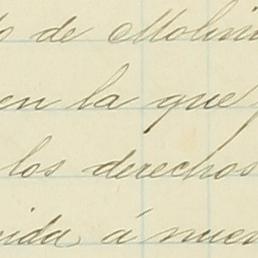 o de Molin
en la que
los derechos
ida á nue